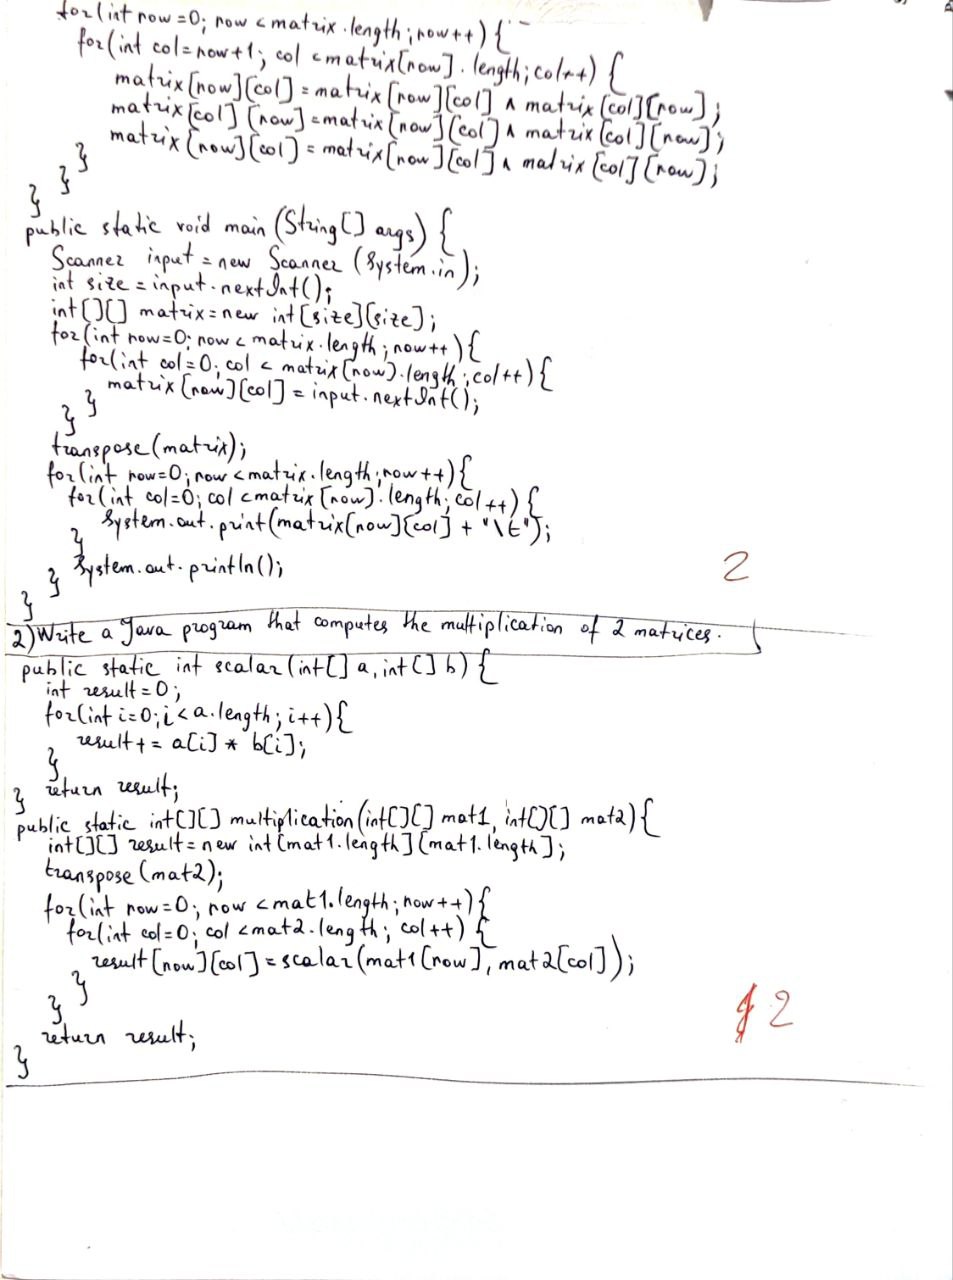 for(int row=0; row<matrix.length;row++){
for(int col=row+1; col<matrix[row].length;col++){
matrix[row][col]=matrix[row][col] ∧ matrix[col][row];
matrix[col][row]=matrix[row][col] ∧ matrix[col][row];
matrix[row][col]=matrix[row][col] ∧ matrix[col][row];
}
}
}
public static void main (String[] args) {
Scanner input = new Scanner (System.in);
int size = input.nextInt();
int[][] matrix=new int[size][size];
for(int row=0; row<matrix.length;row++){
for(int col=0; col<matrix[row].length;col++){
matrix[row][col] = input.nextInt();
}
}
transpose(matrix);
for(int row=0;row<matrix.length;row++){
for(int col=0;col<matrix[row].length;col++){
System.out.print(matrix[row][col] + "\t");
}
System.out.println();
}
}
2
2) Write a Java program that computes the multiplication of 2 matrices.
public static int scalar (int[] a, int[] b) {
int result=0;
for(int i=0;i<a.length;i++){
result+= a[i] * b[i];
}
return result;
}
public static int[][] multiplication(int[][] mat1, int[][] mat2){
int[][] result=new int[mat1.length][mat1.length];
transpose(mat2);
for(int row=0; row<mat1.length;row++){
for(int col=0; col<mat2.length; col++) {
result[row][col]=scalar(mat1[row], mat2[col]);
}
}
return result;
}
2